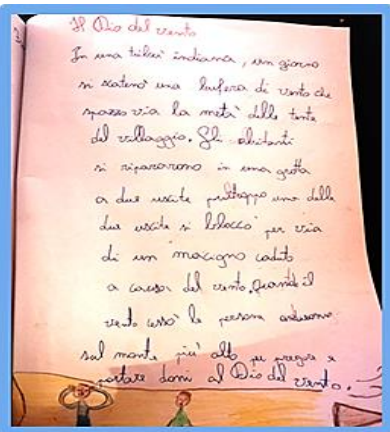 Il Dio del vento
In una tribù indiana, un giorno
si scatenò una bufera di vento che
spazzo via la metà delle tente
del villaggio. Gli abitanti
si ripararono in una grotta
a due uscite purtroppo una delle
due uscite si bloccò per via
di un macigno caduto
a causa del vento. Quando il
vento cessò le persone andarono
sul monte più alto per pregare e
portare doni al Dio del vento.